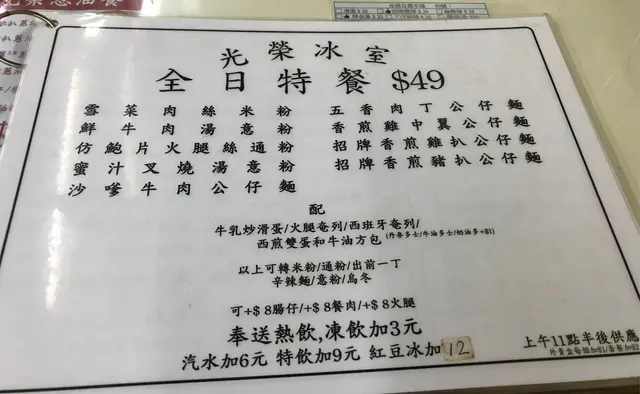 光榮冰室
全日特餐 $49
雪菜肉絲米粉
鮮牛肉湯意粉
仿鮑片火腿絲通粉
蜜汁叉燒湯意粉
沙嗲牛肉公仔麵
五香肉丁公仔麵
香煎雞中翼公仔麵
招牌香煎雞扒公仔麵
招牌香煎豬扒公仔麵
配
牛乳炒滑蛋/火腿奄列/西班牙奄列/
西煎雙蛋和牛油方包(丹麥多士/牛油多士/奶油多+$1)
以上可轉米粉/通粉/出前一丁
辛辣麵/意粉/烏冬
可+$8腸仔/+$8餐肉/+$8火腿
奉送熱飲,凍飲加3元
汽水加6元 特飲加9元 紅豆冰加12
上午11點半後供應
外賣盒每個加$1/套餐加$2